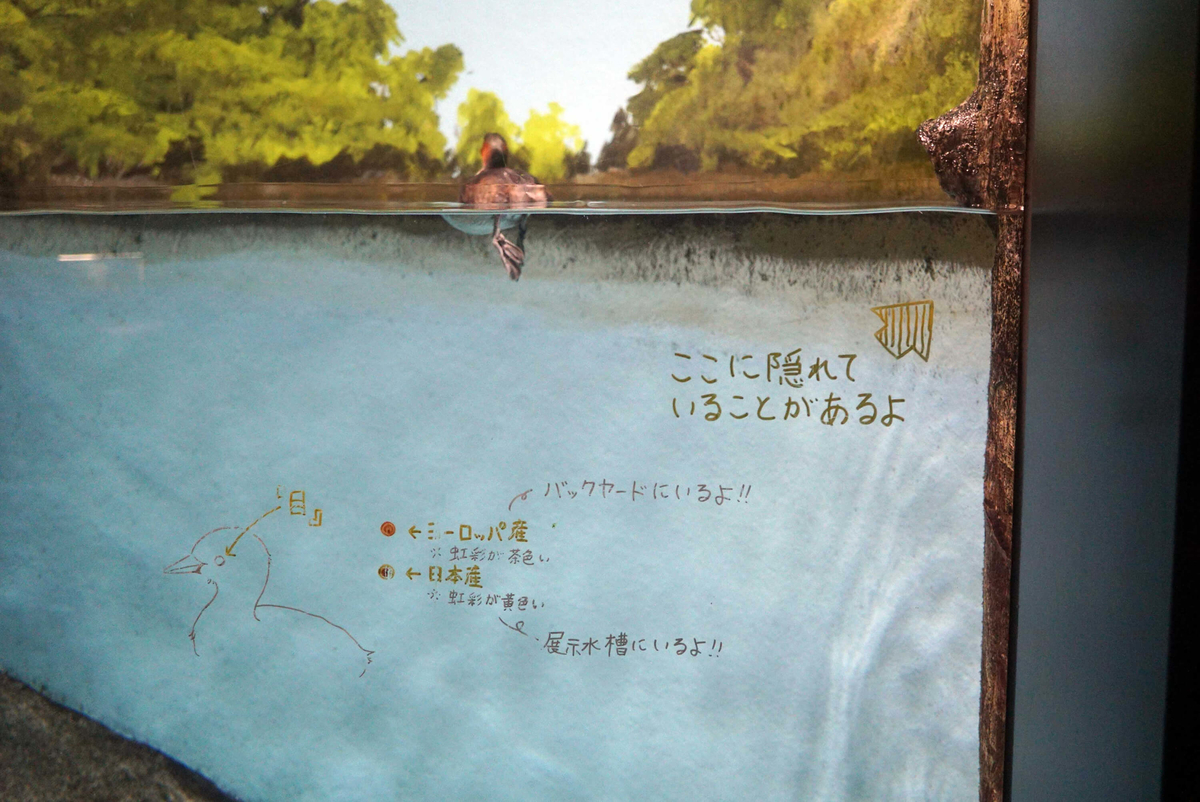 ここに隠れて
いることがあるよ
バックヤードにいるよ!!
目
←ヨーロッパ産
※虹彩が茶色い
←日本産
※虹彩が黄色い
展示水槽にいるよ!!